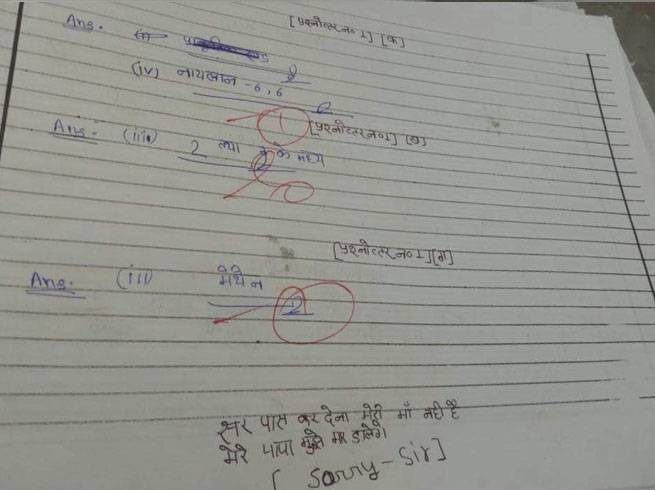 [प्रश्नोत्तर न० 1] [क]
Ans. (i)
(iv) नायलान -6,6
1
[प्रश्नोत्तर न० 1] [ख]
Ans. (iii) 2 तथा के मध्य
[प्रश्नोत्तर न० 1] [ग]
Ans. (iii) मेथेन
2
सर पास कर देना मेरी माँ नही है
मेरे पापा मुझे मार डालेगें
[ Sorry-Sir]